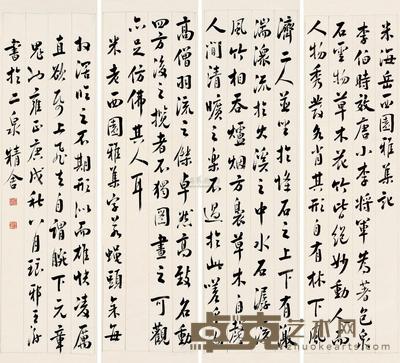 米海岳西園雅集記
李伯時效唐小李將軍為著色泉
石雲物草木花竹皆絕妙動人而
人物秀發各肖其形自有林下風
濟二人並坐於怪石之上下有激
湍濚流於大溪之中水石潺湲
風竹相吞爐煙方裊草木自馨
人間清曠之樂不過於此嗟乎
高僧羽流之傑卓然高致名動
四方後之攬者不獨圖畫之可觀
亦足仿佛其人耳
米老西園雅集字若蠅頭余每
臨之不期形似而雄快凌厲
直欲上飛去自謂腕下元章
雍正庚戌秋八月琅邪王澍
書於二泉精舍